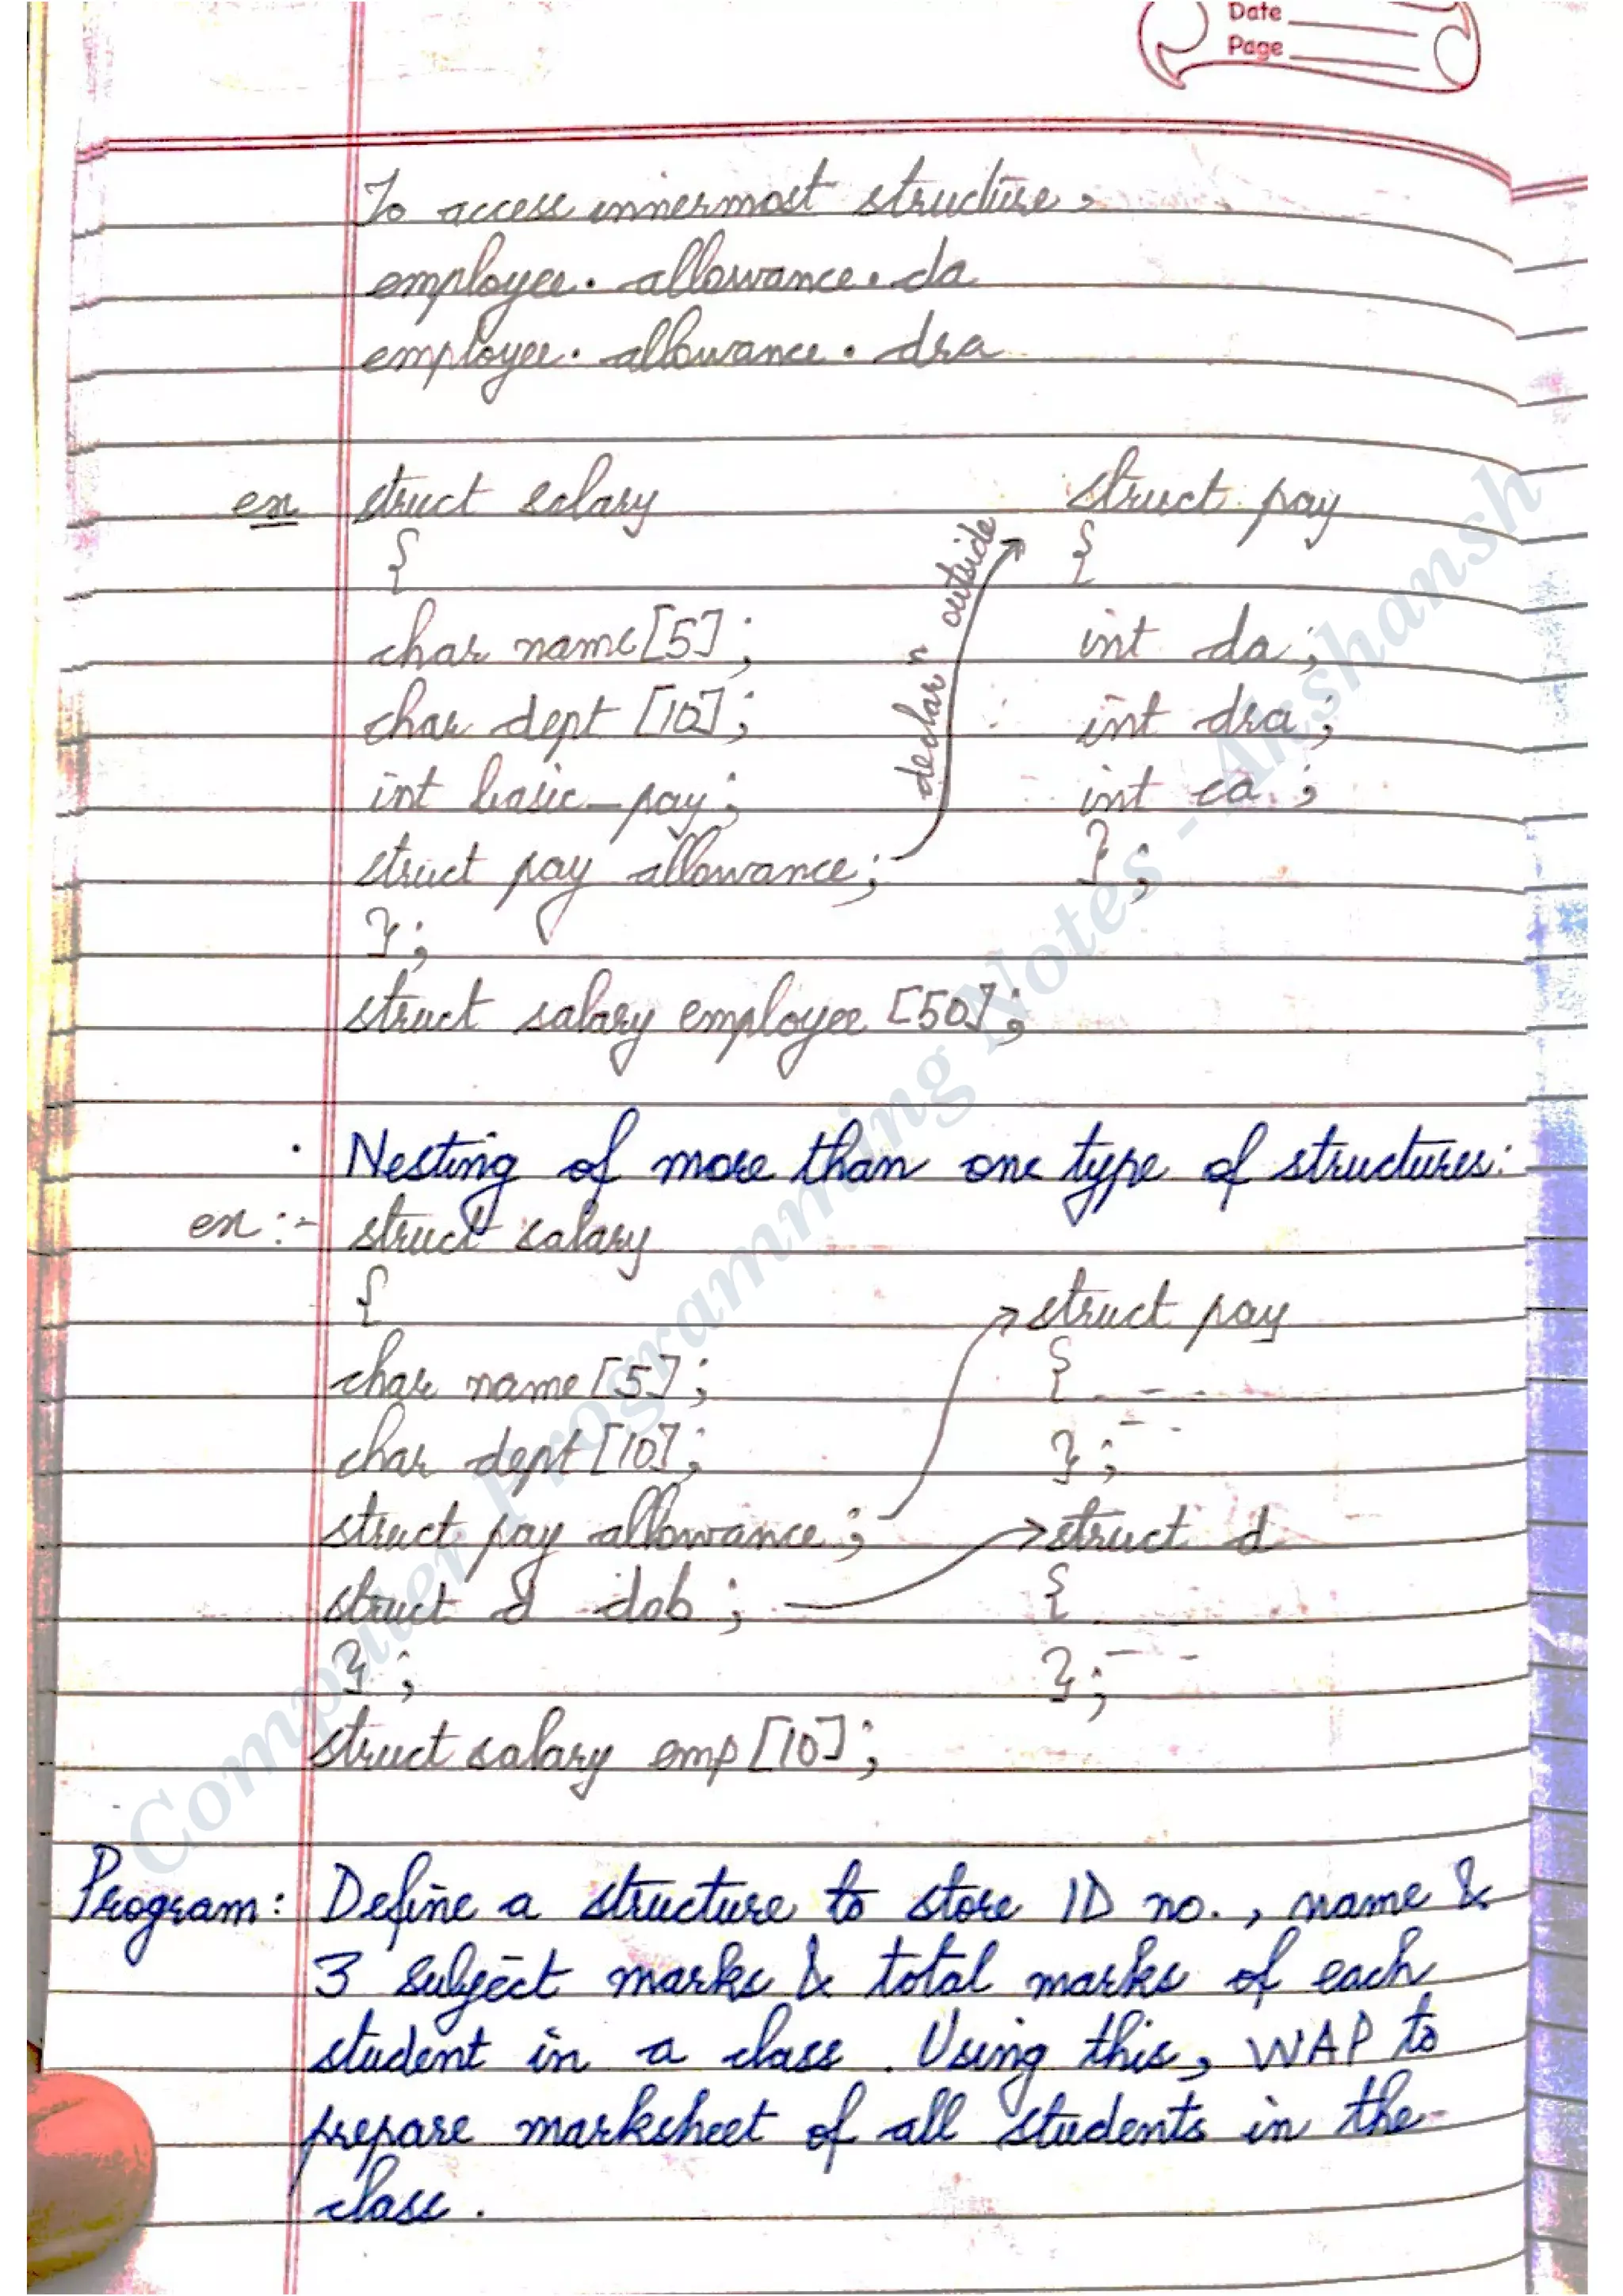 Date
Page
To access innermost structure,
employee. allowance. da
employee. allowance. dra
ex struct salary
{
char name[5];
char dept [10];
int basic_pay;
struct pay allowance;
};
struct salary employee [50];
declar n outside
struct pay
{
int da;
int dra;
int ca;
};
. Nesting of more than one type of structures:
ex:- struct salary
{
char name[5];
char dept[10];
struct pay allowance;
struct d dob;
};
struct salary emp[10];
struct pay
{ - - -
- - -
};
struct d
{
- -
};
Program: Define a structure to store ID no., name &
3 subject marks & total marks of each
student in a class. Using this, WAP to
prepare marksheet of all students in the
class.
Computer Programming Notes - Akshansh